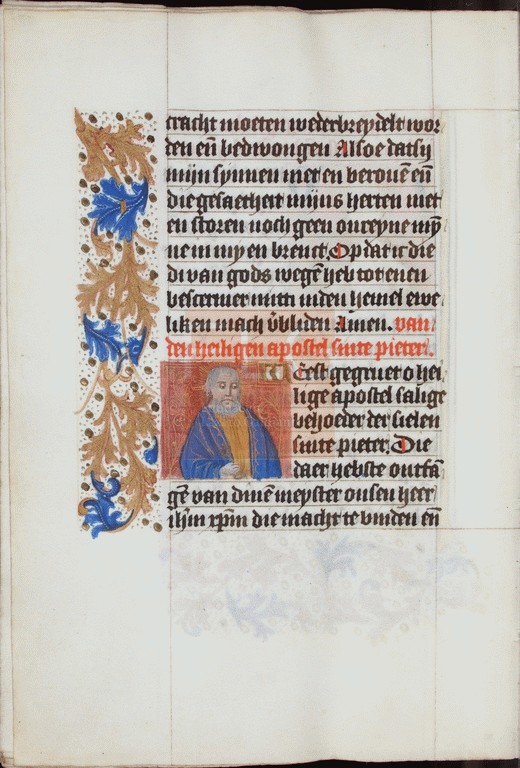 cracht moeten wederbreydelt wor
den eñ bedwongen Alsoe dat sij
mijn synnen niet en berouē eñ
die gesaetheit mijns herten niet
en storen noch geen onreyne mȳ
ne in my en brenct. Op dat ic die
di van gods wegē heb tot enen
beschermer mitti inden hemel ewe
liken mach v̄bliden Amen. van
den heiligen apostel sinte pieter.
est gegruet o hei
lige apostel salige
behoeder der sielen
sinte pieter. Die
daer hebste ontfā
gē van dinē meyster onsen heer
ihm xpm die macht te binden eñ